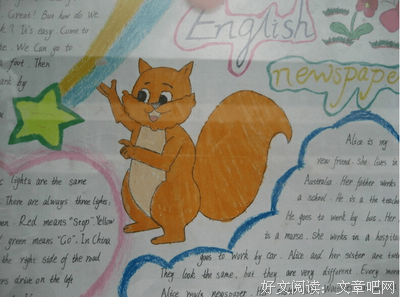 English
newspape
Green! But how do We
? It's easy. Come to
We Can go to
foot. Then
ark by
lights are the same
There are always three lights,
Red means "Stop". Yellow
green means "Go". In China
the right side of the road
ers drive on the left
Alice is my
new friend. She lives in
Australia. Her father works
a school. He is a teache
He goes to work by bus. Her
is a nurse. She works in a hospita
goes to work by car. Alice and her sister are
They look the same, but they are very different. Every morni
Alice reads newspaper
好文阅读：文章吧网